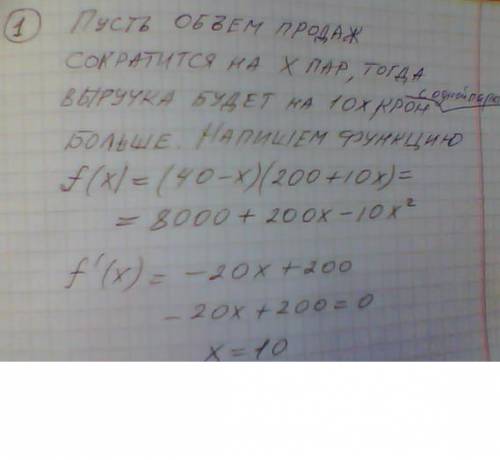 1 ПУСТЬ ОБЪЕМ ПРОДАЖ
СОКРАТИТСЯ НА X ПАР, ТОГДА
ВЫРУЧКА БУДЕТ НА 10X КРОН с одной пары
БОЛЬШЕ. НАПИШЕМ ФУНКЦИЮ
f(x) = (40-x)(200+10x) =
= 8000 + 200x - 10x²
f'(x) = -20x + 200
-20x + 200 = 0
x = 10